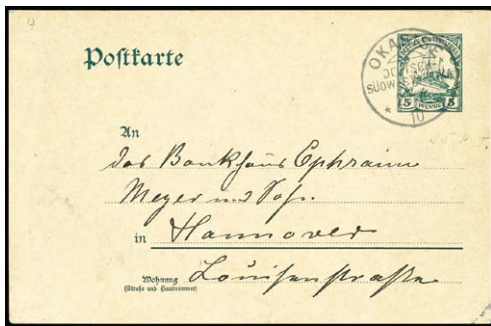 Postkarte
DEUTSCH-
SÜDW
5 PFENNIG 5
10
An
das Bankhaus Ephraim
Meyer und Sohn
in Hannover
Wohnung
(Straße und Hausnummer)
Louisenstraße